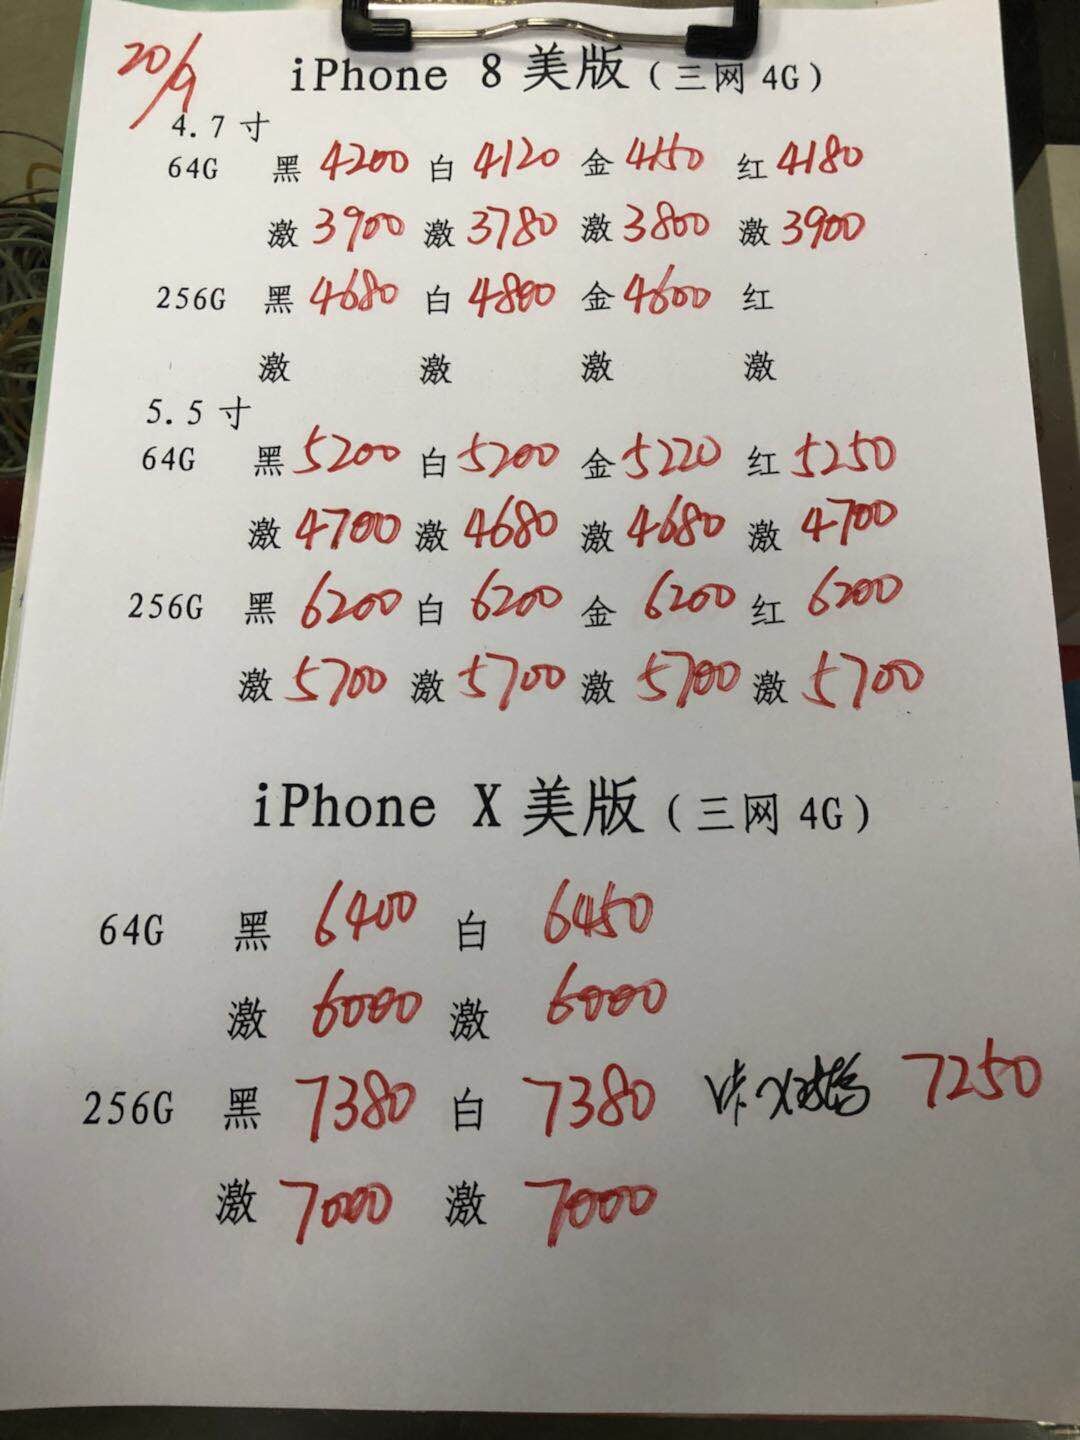 20/9
iPhone 8美版（三网4G）
4.7寸
64G 黑 4200 白 4120 金 4150 红 4180
激 3900 激 3780 激 3800 激 3900
256G 黑 4680 白 4800 金 4600 红
激 激 激 激
5.5寸
64G 黑 5200 白 5200 金 5220 红 5250
激 4700 激 4680 激 4680 激 4700
256G 黑 6200 白 6200 金 6200 红 6200
激 5700 激 5700 激 5700 激 5700
iPhone X美版（三网4G）
64G 黑 6400 白 6450
激 6000 激 6000
256G 黑 7380 白 7380 7250
激 7000 激 7000